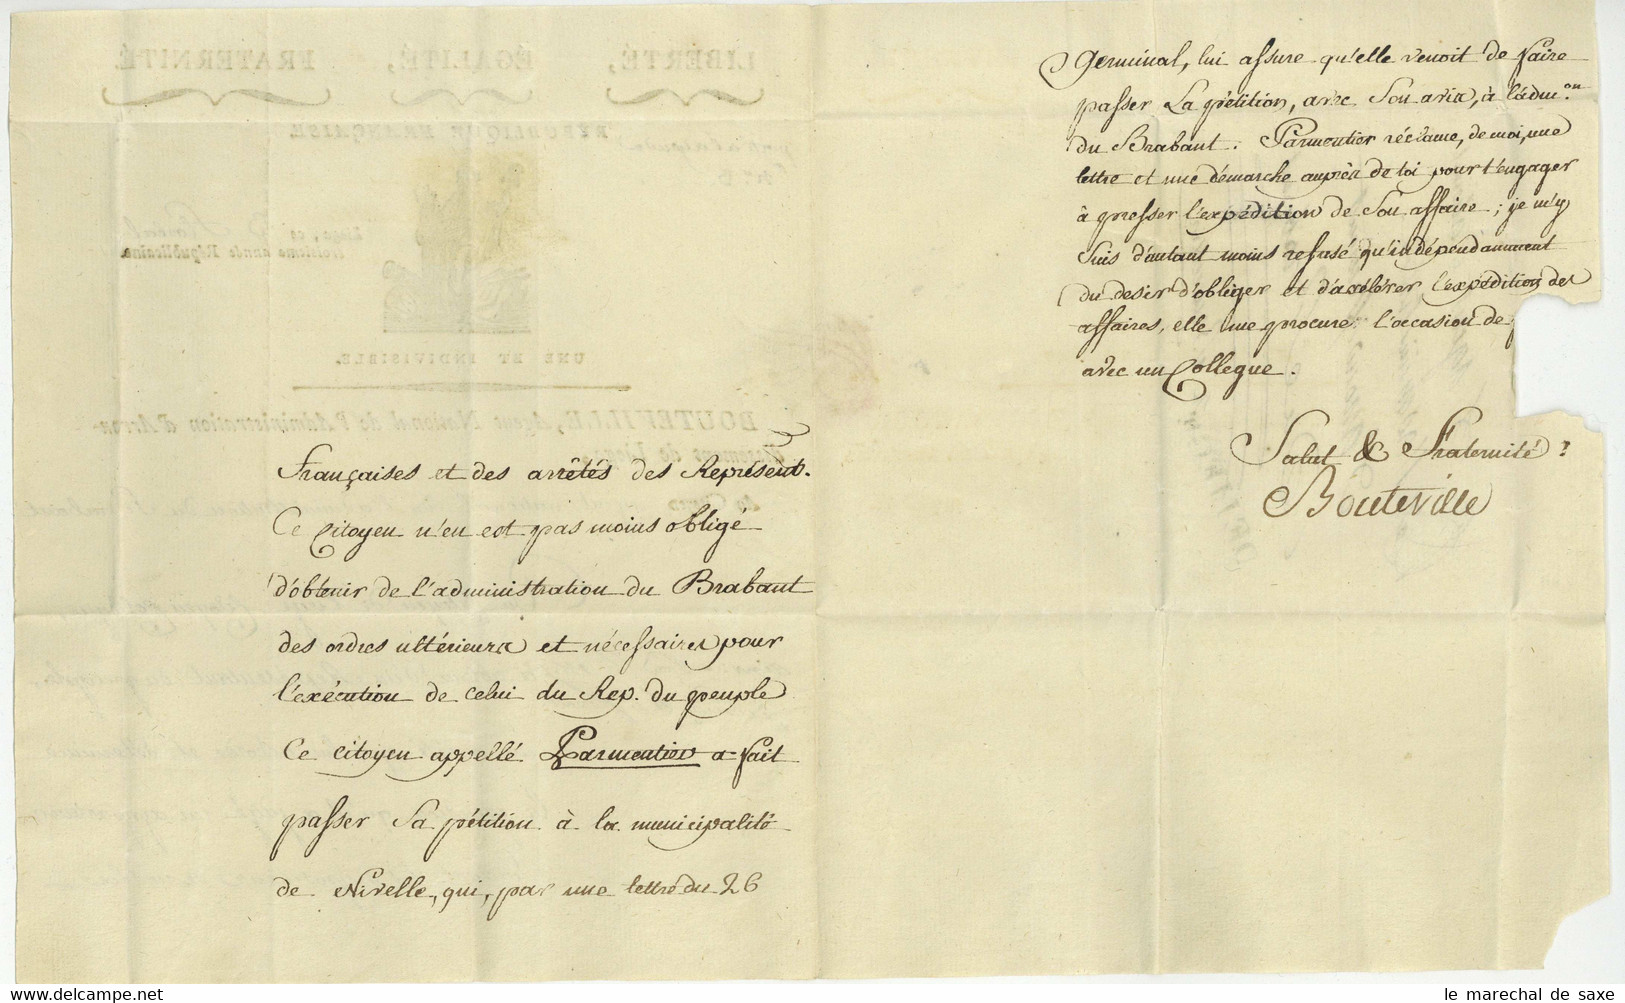 Françaises et des arrêtés des Représent.
Ce Citoyen n'en est pas moins obligé
d'obtenir de l'administration du Brabant
des ordres ultérieurs et nécessaires pour
l'exécution de celui du Rep. du peuple
Ce citoyen appellé Parmentier a fait
passer sa pétition à la municipalité
de Nivelle, qui, par une lettre du 26
Germinal, lui assure qu'elle venoit de faire
passer la pétition, avec son avis, à l'adm.on
du Brabant. Parmentier réclame, de moi, une
lettre et une démarche auprès de toi pour t'engager
à presser l'expédition de son affaire; je m'y
suis d'autant moins refusé qu'indépendamment
du desir d'obliger et d'accélérer l'expédition des
affaires, elle me procure l'occasion de
avec un Collegue.
Salut & Fraternité
Bouteville
LIBERTÉ, ÉGALITÉ, FRATERNITÉ
RÉPUBLIQUE FRANÇAISE
troisième année Républicaine.
UNE ET INDIVISIBLE.
BOUTEVILLE, Agent National de l'Administration d'Arron-
le marechal de saxe